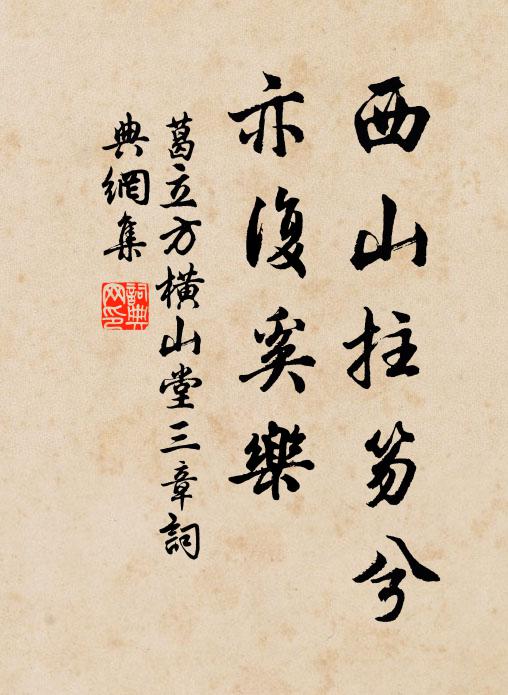 西山拄笏兮
亦復奚樂
葛立方橫山堂三章詞
典網集
詞典
网印